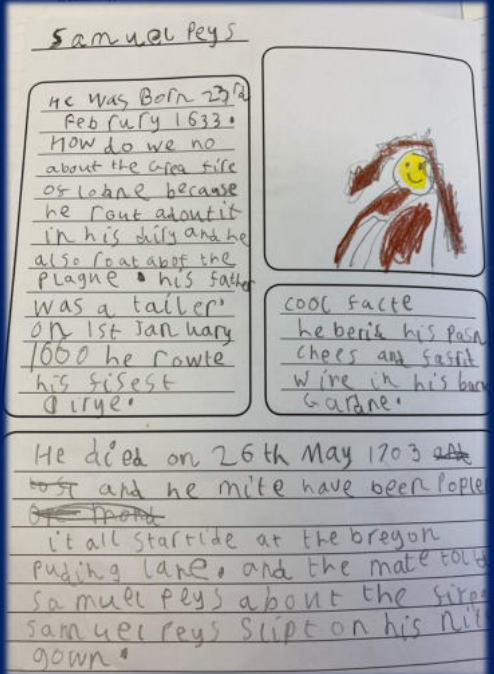 Samuel Peys
He was Born 23rd
Februry 1633.
How do we no
about the Grea fire
of lobne because
he rout adoutit
in his diily and he
also roat abot the
plague. his father
was a tailer.
on 1st Jan uary
1660 he rowte
his fisest
dirye.
cool facte
he beris his pasn
chees and fafrit
wire in his back
Gardne.
He died on 26th May 1703
and he mite have been Pople
it all startide at the breyon
Puding lane. and the mate told
Samuel Peys about the fire
Samuel Peys Slipt on his nit
gown.